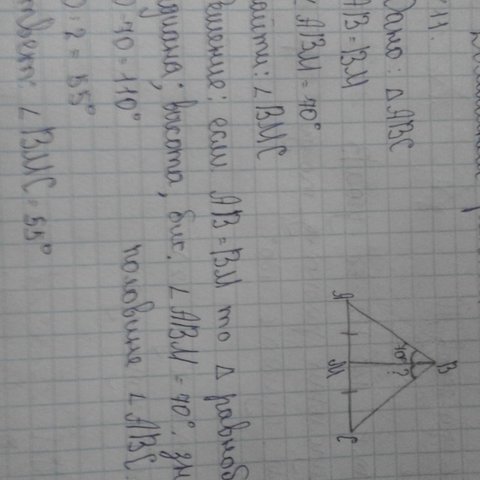 Дано: △ ABC
AB = BM
∠ ABM = 70°
Найти: ∠ BMC
Решение: если AB = BM то △ равноб
высота, бис. ∠ ABM = 70°. зн
70 = 110° половине ∠ ABC
: 2 = 55°
Ответ: ∠ BMC = 55°
B
70° ?
A M C